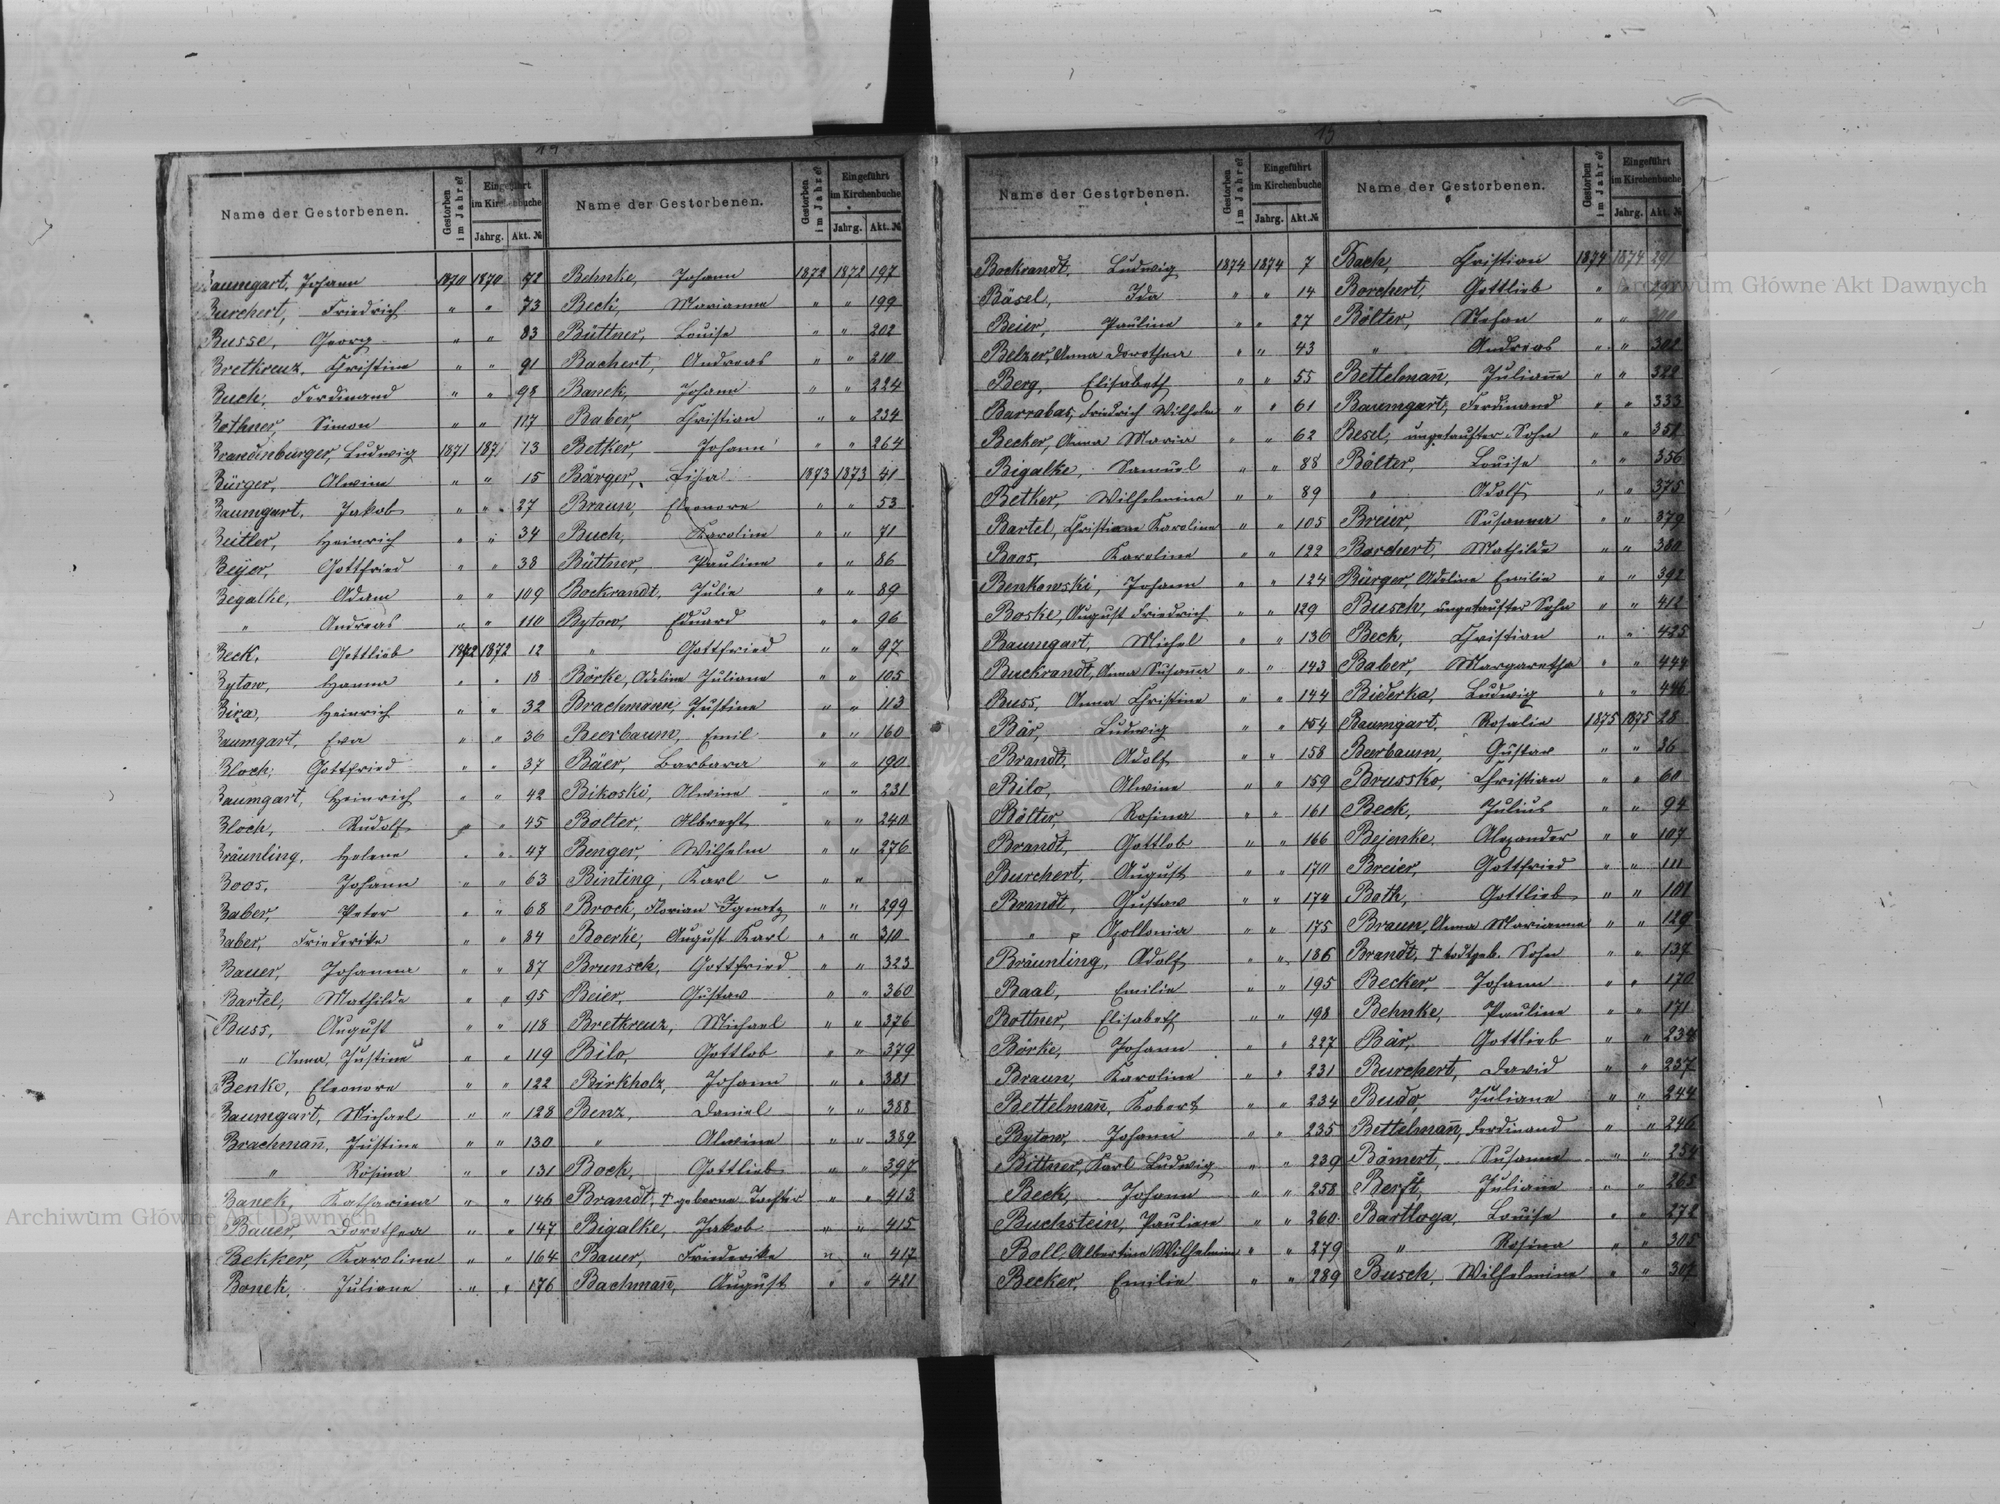 Name der Gestorbenen. Gestorben im Jahre Eingeführt im Kirchenbuche Jahrg. Akt. №
Baumgart, Johann 1870 1870 72
Burchert, Friedrich " " 73
Busse, Georg " " 83
Bretkreuz, Christine " " 91
Buch, Ferdinand " " 98
Bothner, Simon " " 117
Brandenburger, Ludwig 1871 1871 13
Bürger, Alwine " " 15
Baumgart, Jakob " " 27
Beitler, Heinrich " " 34
Beyer, Gottfried " " 38
Begalke, Adam " " 109
" Andreas " " 110
Beck, Gottlieb 1872 1872 12
Bytow, Hanna " " 18
Bira, Heinrich " " 32
Baumgart, Eva " " 36
Bloch, Gottfried " " 37
Baumgart, Heinrich " " 42
Bloch, Rudolf " " 45
Bräunling, Helene " " 47
Boos, Johann " " 63
Baber, Peter " " 68
Baber, Friederike " " 84
Bauer, Johanna " " 87
Bartel, Mathilde " " 95
Buss, August " " 118
" Anna Justine " " 119
Benke, Eleonore " " 122
Baumgart, Michael " " 128
Brachmañ, Justine " " 130
" Rosina " " 131
Banek, Katharina " " 146
Bauer, Dorothea " " 147
Bekker, Karoline " " 164
Bonek, Juliane " " 176
Name der Gestorbenen. Gestorben im Jahre Eingeführt im Kirchenbuche Jahrg. Akt. №
Behnke, Johann 1872 1872 197
Beck, Marianna " " 199
Büttner, Louise " " 202
Bachert, Andreas " " 210
Banek, Johann " " 224
Baber, Christian " " 234
Betker, Johann " " 264
Bürger, Lisa 1873 1873 41
Braun, Eleonore " " 53
Buch, Karoline " " 71
Büttner, Pauline " " 86
Bockrandt, Julie " " 89
Bytow, Eduard " " 96
" Gottfried " " 97
Börke, Adeline Juliane " " 105
Brachmann, Justine " " 113
Beerbaum, Emil " " 160
Bäer, Barbara " " 190
Bikoski, Alwine " " 231
Bolter, Albrecht " " 240
Benger, Wilhelm " " 276
Binting, Karl " "
Brock, Florian Ignatz " " 299
Boerke, August Karl " " 310
Brunsch, Gottfried " " 323
Beier, Gustaw " " 360
Bretkreuz, Michael " " 376
Bilo, Gottlob " " 379
Birkholz, Johann " " 381
Benz, Daniel " " 388
" Alwine " " 389
Bock, Gottlieb " " 397
Brandt, † geborne Tochter " " 413
Bigalke, Jakob " " 415
Bauer, Friederike " " 417
Bachmañ, August " " 421
13
Name der Gestorbenen. Gestorben im Jahre Eingeführt im Kirchenbuche Jahrg. Akt. №
Bockrandt, Ludwig 1874 1874 7
Bäsel, Ida " " 14
Beier, Pauline " " 27
Belzer, Anna Dorothea " " 43
Berg, Elisabeth " " 55
Barrabas, Friedrich Wilhelm " " 61
Becker, Anna Maria " " 62
Bigalke, Samuel " " 88
Betker, Wilhelmine " " 89
Bartel, Christiane Karoline " " 105
Boos, Karoline " " 122
Benkowski, Johann " " 124
Boske, August Friedrich " " 129
Baumgart, Michel " " 136
Buckrandt, Anna Susaña " " 143
Buss, Anna Christine " " 144
Bär, Ludwig " " 154
Brandt, Adolf " " 158
Bilo, Alwine " " 159
Bölter, Rosina " " 161
Brandt, Gottlob " " 166
Burchert, August " " 170
Brandt, Gustaw " " 174
" Apollonia " " 175
Bräunling, Adolf " " 186
Baal, Emilie " " 195
Bottner, Elisabeth " " 198
Börke, Johann " " 227
Braun, Karoline " " 231
Bettelmañ, Robert " " 234
Bytow, Johann " " 235
Bittner, Karl Ludwig " " 239
Beck, Johann " " 258
Buchstein, Pauline " " 260
Boll, Albertine Wilhelmine " " 279
Becker, Emilie " " 289
Name der Gestorbenen. Gestorben im Jahre Eingeführt im Kirchenbuche Jahrg. Akt. №
Bach, Christian 1874 1874 291
Borchert, Gottlieb " "
Bölter, Stefan " " 300
" Andreas " " 302
Bettelmañ, Juliañe " " 322
Baumgart, Ferdinand " " 333
Besel, ungetaufter Sohn " " 351
Bölter, Louise " " 356
" Adolf " " 375
Breier, Susanna " " 379
Borchert, Mathilde " " 380
Bürger, Adeline Emilie " " 392
Busch, ungetaufter Sohn " " 412
Beck, Christian " " 425
Baber, Margaretha " " 444
Biderka, Ludwig " " 446
Baumgart, Rosalie 1875 1875 28
Beerbaum, Gustaw " " 36
Brussko, Christian " " 60
Beck, Julius " " 94
Bejenke, Alexander " " 107
Breier, Gottfried " " 111
Both, Gottlieb " " 101
Braun, Anna Marianna " " 129
Brandt, † todtgeb. Sohn " " 137
Becker, Johann " " 170
Behnke, Pauline " " 171
Bär, Gottlieb " " 234
Burchert, David " " 237
Budo, Juliane " " 244
Bettelmañ, Ferdinand " " 246
Bömert, Susanne " " 254
Berft, Juliañe " " 263
Bartloga, Louise " " 272
" Rosina " " 305
Busch, Wilhelmine " " 307
Archiwum Główne Akt Dawnych
Archiwum Główne Akt Dawnych